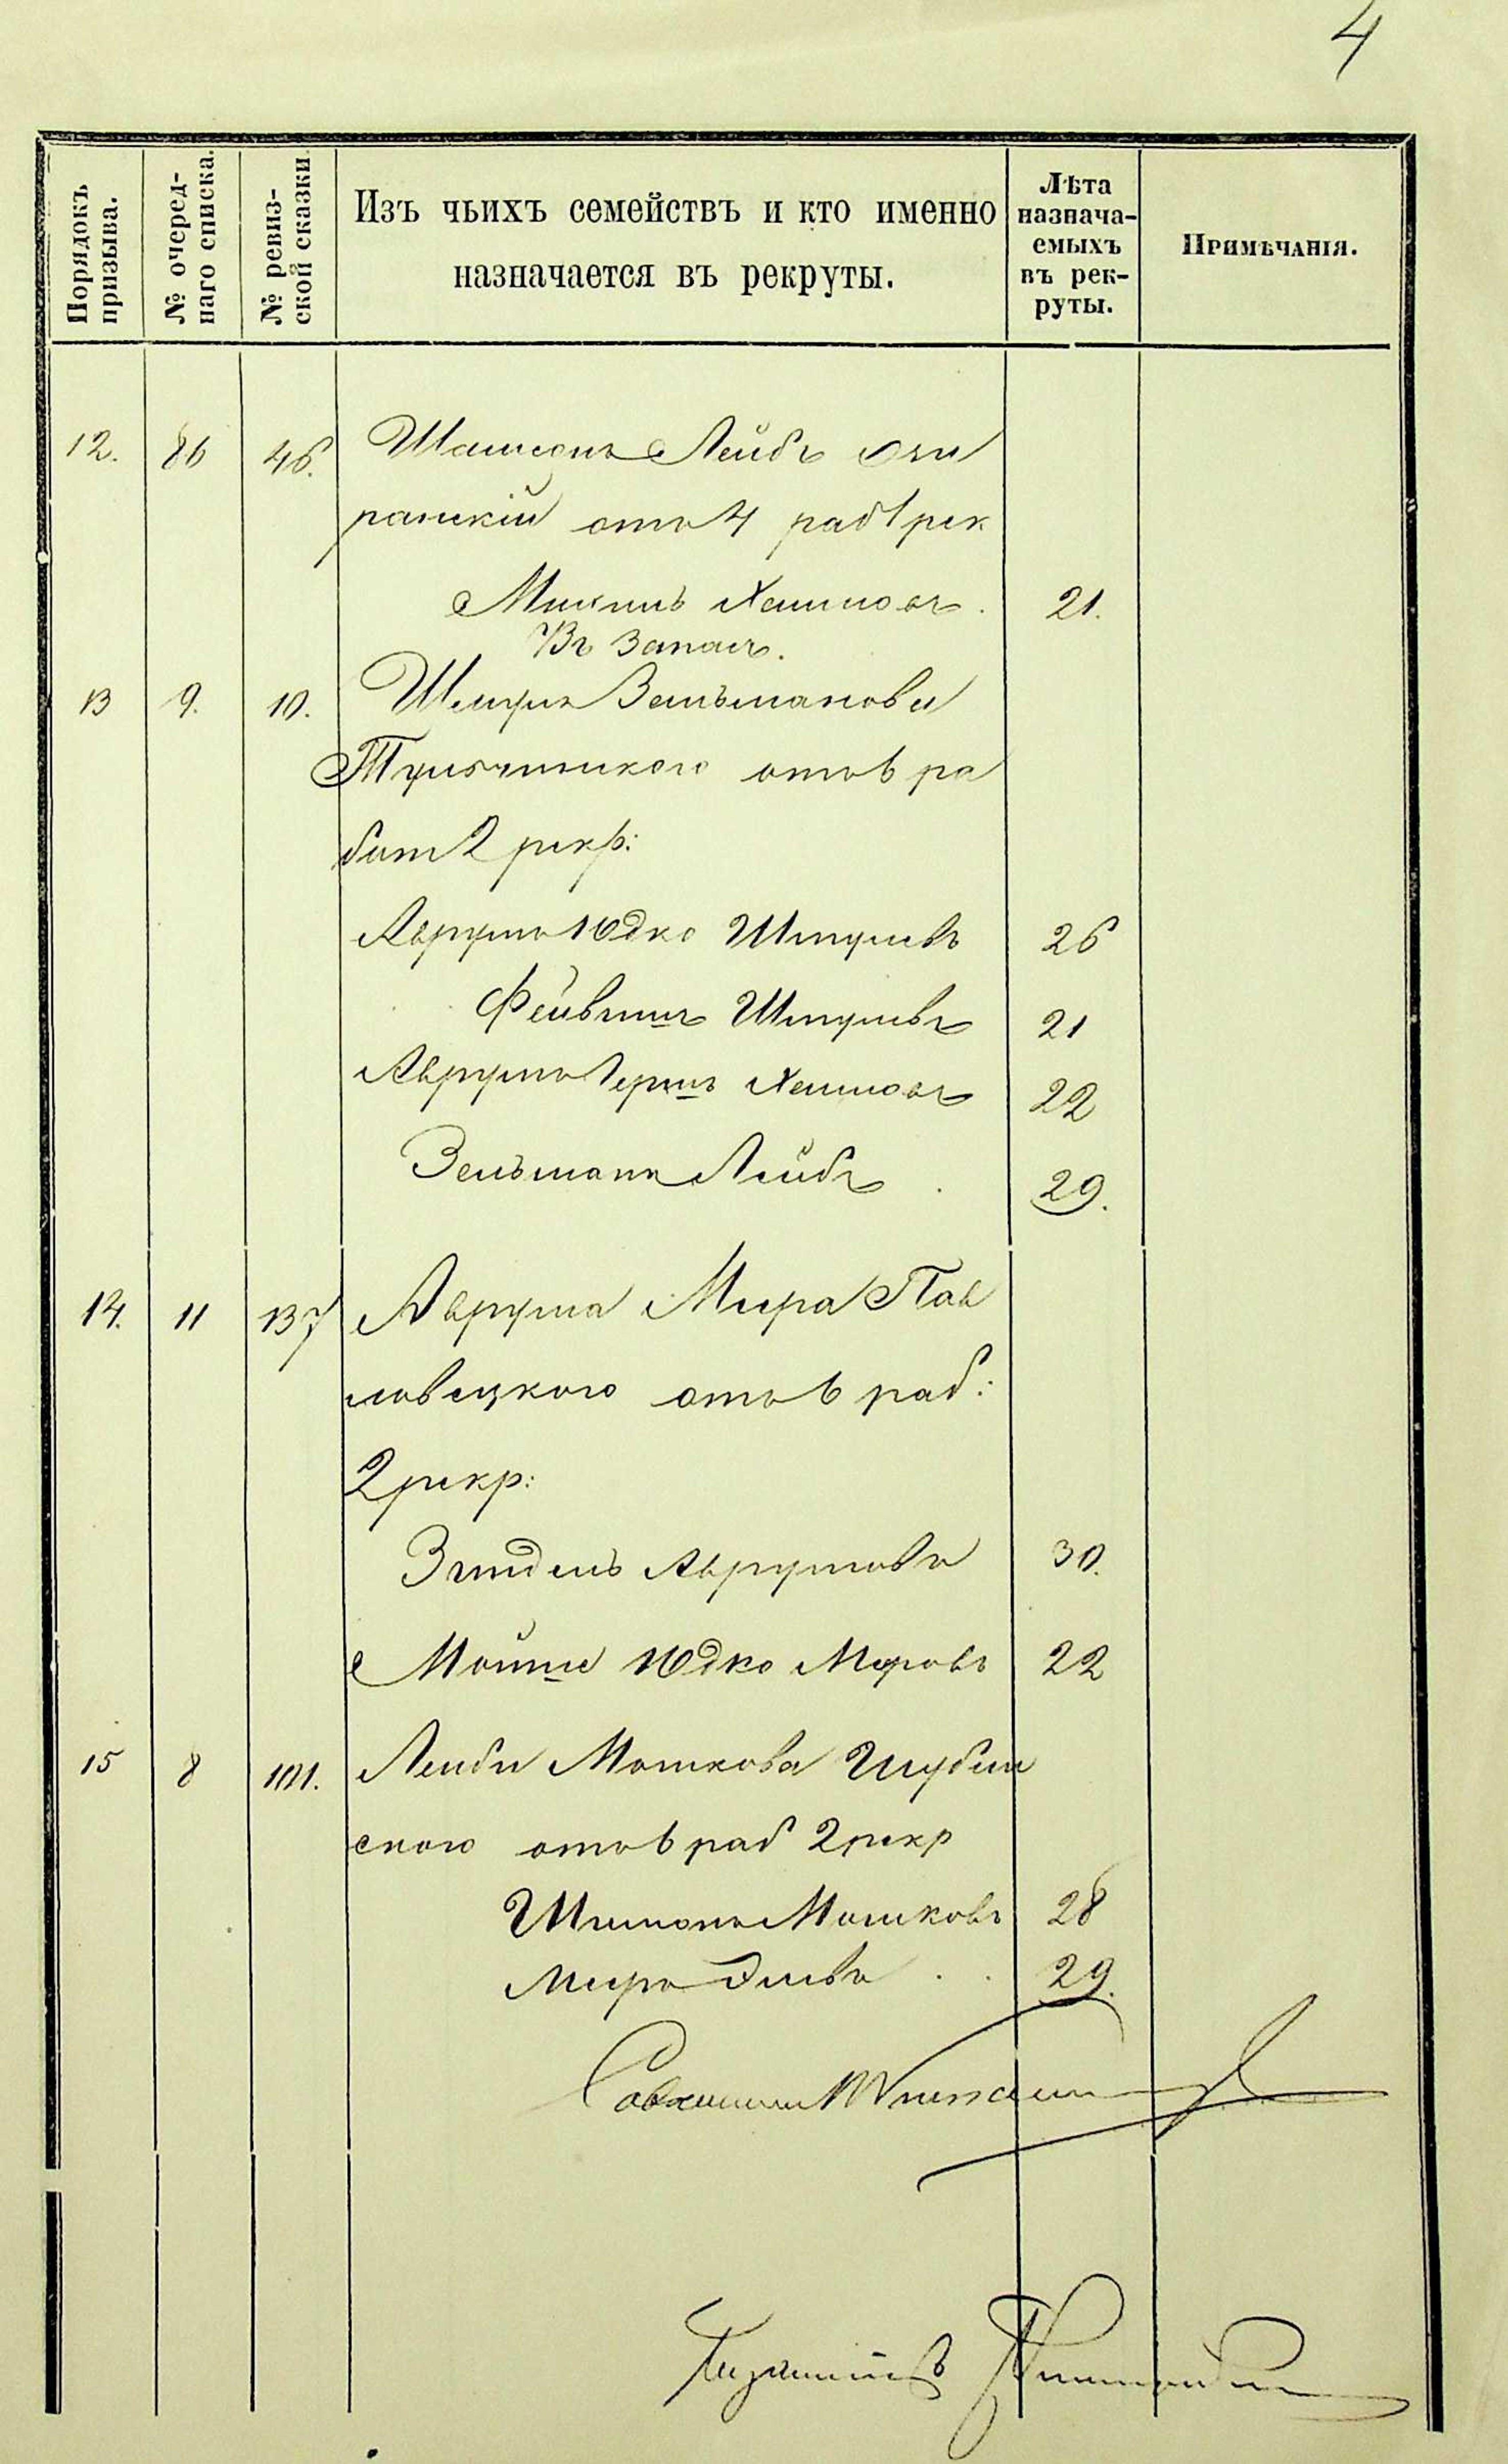 4
Порядокъ призыва.
№ очеред-
наго списка.
№ ревиз-
ской сказки.
Изъ чьихъ семействъ и кто именно
назначается въ рекруты.
Лѣта
назнача-
емыхъ
въ рек-
руты.
Примѣчанія.
12. 86 46. Лейбъ
ранскій отъ 4 раб 1 рек
Хаимовъ. 21.
Въ запасъ.
13 9. 10. Шмуля Зельманова
отъ 6 ра
бот 2 рекр:
Аврумъ Юдко Шмулевъ 26
Фейвишъ Шмулевъ 21
Аврумъ Гершъ Хаимовъ 22
Зельманъ Лейбъ . 29.
14. 11 137 Аврума Мера Пав
ловецкого отъ 6 раб:
2 рекр:
Зейдель Аврумовъ 30.
Мойше Юдко Меровъ 22
15 8 101. Лейби Мошкова Шубин
ского отъ 6 раб 2 рекр
Шимонъ Мошковъ 28
Меръ . . 29.